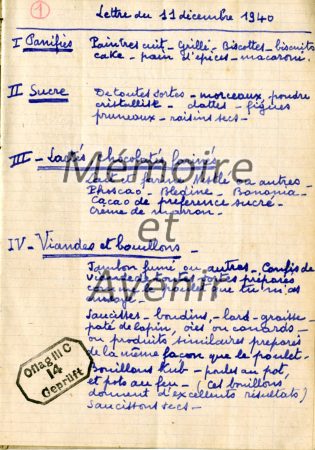 1
Lettre du 11 décembre 1940
I Panifiés
Pain très cuit - Grillé - Biscottes - biscuits
cake - pain d'épices - macaroni.
II Sucre
De toutes sortes - morceaux, poudre
cristallisé - dattes - figues
pruneaux - raisins secs -
III - Lactés, chocolatés,
Lait et farine Nestlé ou autres -
Phoscao - Blédine - Banania -
Cacao de préférence sucré -
Crème de marron -
IV - Viandes et bouillons
Jambon fumé ou autres - Confis de
viande de toutes sortes préparés
comme le poulet que tu m'as
envoyé -
Saucisses - boudins, - lard - graisse -
paté de lapin, oies ou canards -
ou produits similaires préparés
de la même façon que le poulet -
Bouillons Kub - poules au pot,
et pots au feu - (Ces bouillons
donnent d'excellents résultats)
Saucissons secs -
Oflag III C
14
Geprüft
Mémoire
et
Avenir